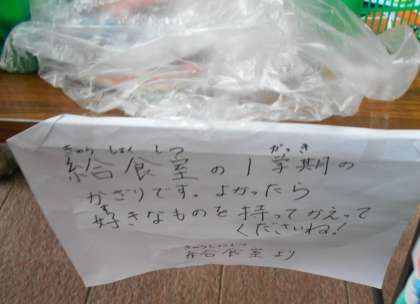 きゅう しょく しつ がっき
給食室の1学期の
かざりです。よかったら
好きなものを持ってかえって
くださいね！
きゅうしょくしつ
給食室より